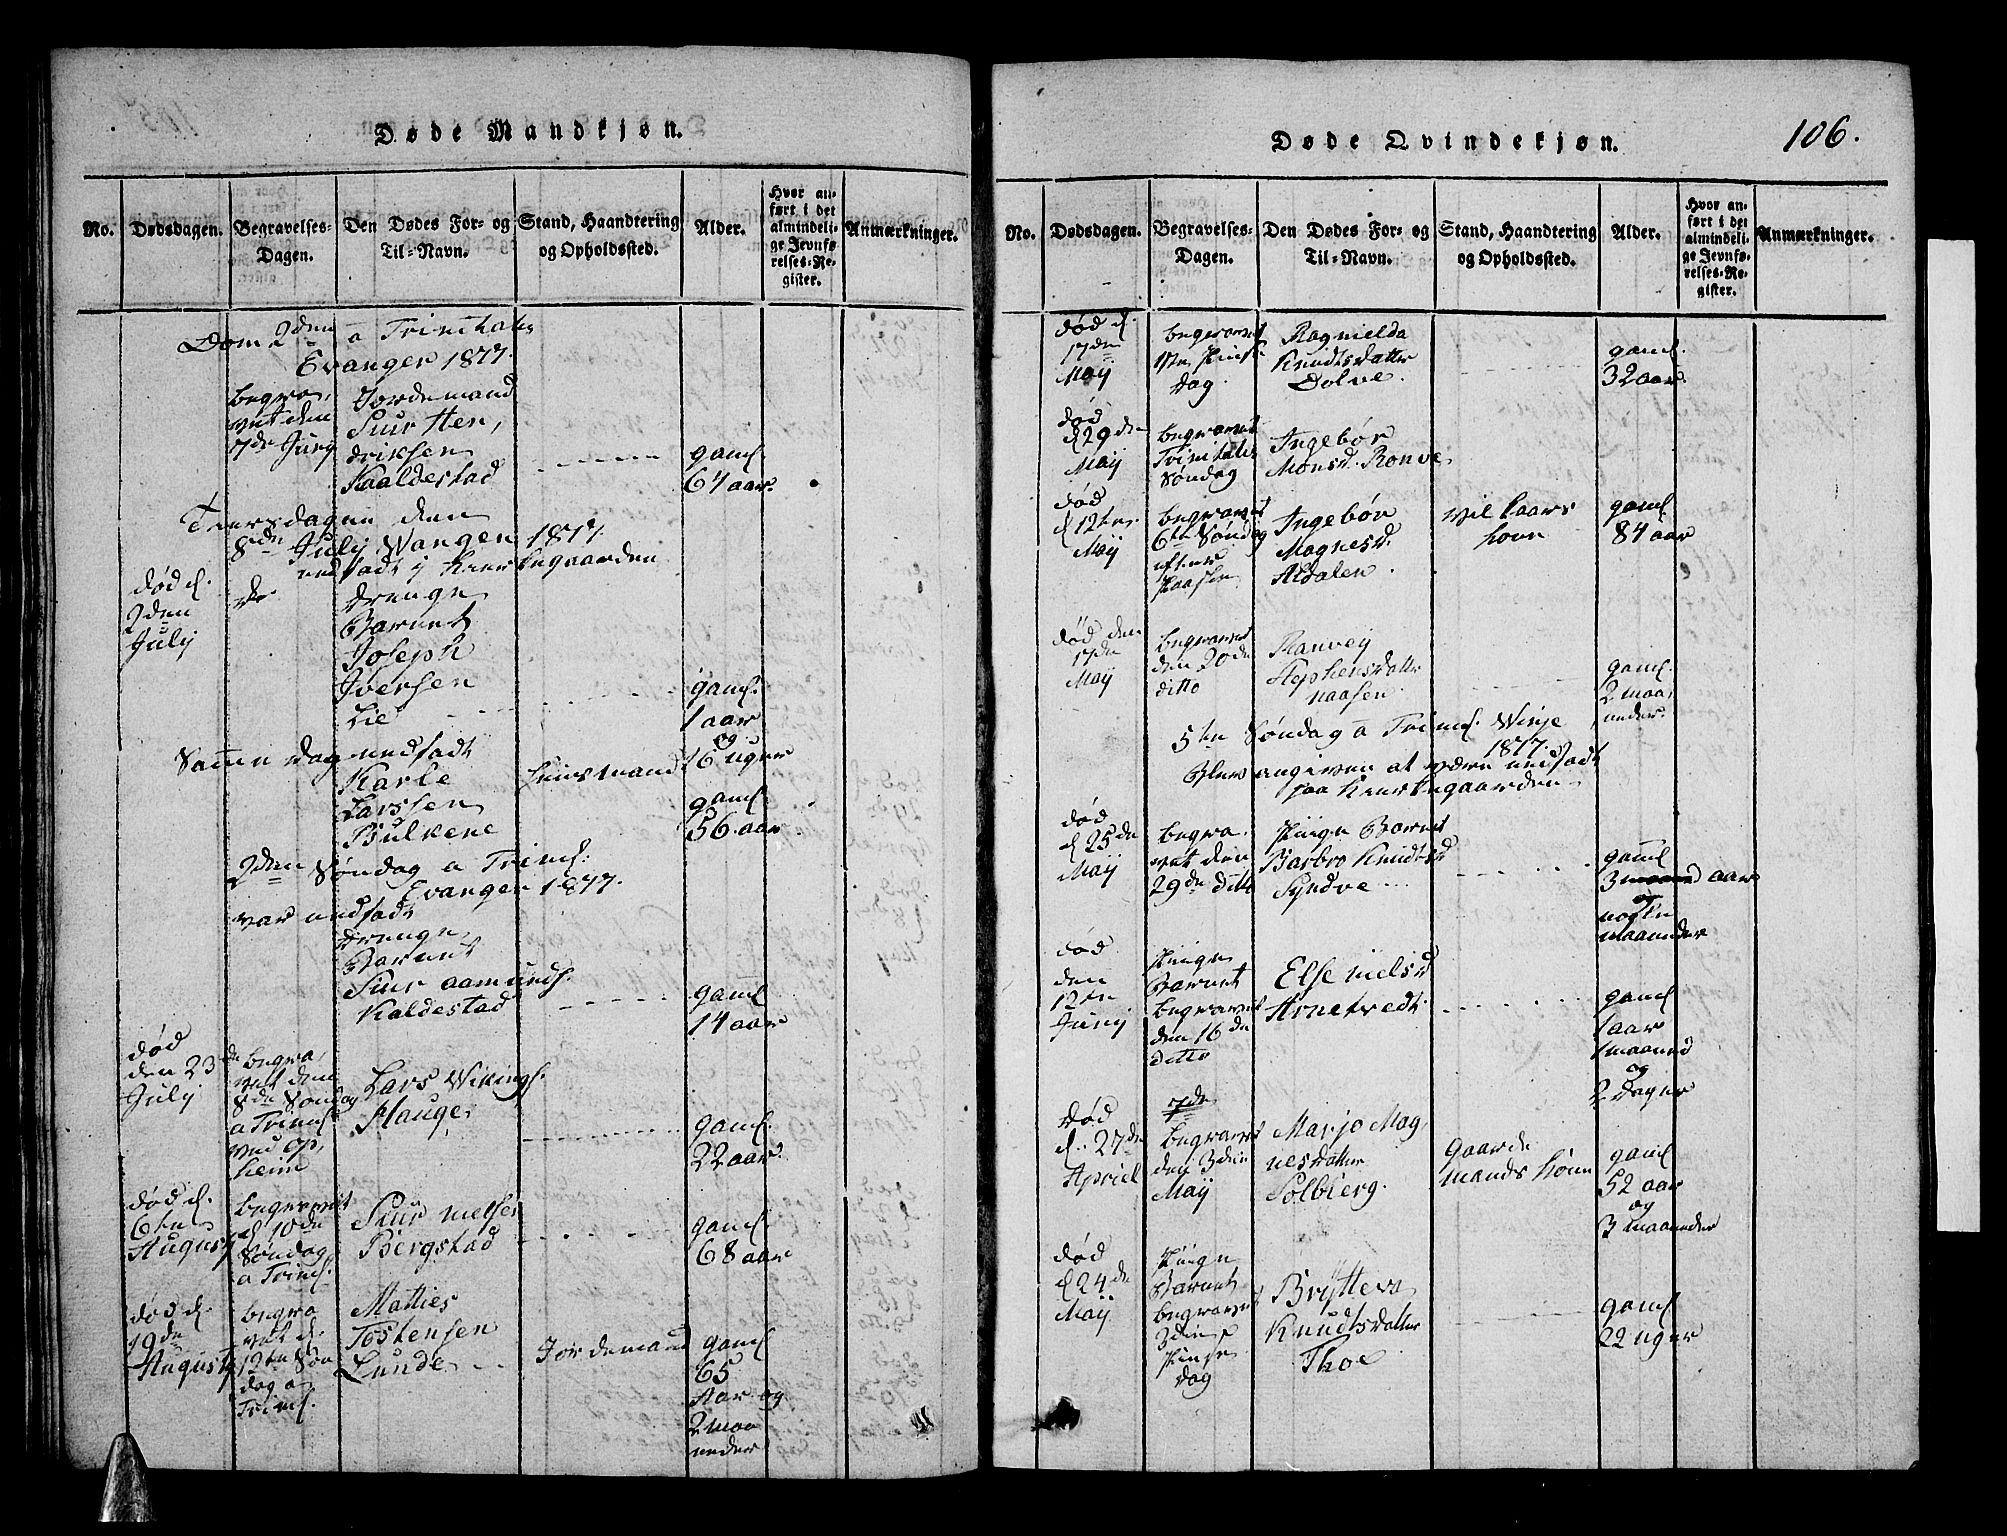 Døde Mandkjøn.
No.
Dødsdagen.
Begravelses-
Dagen.
Den Dødes For- og
Til-Navn.
Stand, Haandtering
og Opholdssted.
Alder.
Hvor an-
ført i det
almindeli-
ge Jevnfø-
relses-Re-
gister.
Anmærkninger.
Dom 2den a Trinitatis
Evanger 1817.
begra,
vet den
7de Juny
Jordemand
Siur Hen,
driksen
Kaaldestad
gaml.
64 aar.
Tiersdagen den
8de July Wangen 1817
nedsadt i Kierkegaarden
død d.
2den
July
do
Drenge
Barnet
Joseph
Iversen
Lie
gaml.
1 aar
og
16 uger
Samme dag nedsadt
Karle
Larssen
Bulkene
huusmand
gaml.
56 aar
2den Søndag a Trinit.
Evanger 1817.
var nedsadt
Drenge
Barnet
Siur Aamunds.
Kaldestad
gaml
14 aar
død
den 23de
July
begra,
vet den
8de Søndag
a Trinit.
ved Op,
heim
Lars Wikings.
Hauge
gaml.
22 aar.
død d.
6te
August
begravet
d 10de
Søndag
a Trinit.
Siur Nielsen
Bergstad
gaml
68 aar
død d.
19de
August
begra
vet d.
12te Søn
dag a
Trinit.
Matties
Tostensen
Lunde
Jordemand
gaml
65
Aar og
2 maa
neder
Døde Qvindekjøn.
106.
No.
Dødsdagen.
Begravelses-
Dagen.
Den Dødes For- og
Til-Navn.
Stand, Haandtering
og Opholdssted.
Alder.
Hvor an-
ført i det
almindeli-
ge Jevnfø-
relses-Re-
gister.
Anmærkninger.
død d.
17de
Maij
begravet
1ste Pinse
Dag
Ragnielda
Knudtsdatter
Dolve.
gaml.
32 aar.
død
d 29de
Maij
begravet
Trinitatis
Søndag
Ingebør
Monsd. Ronve
død
d 12te
Maij
begravet
6te Søndag
efter
Paaske
Ingebør
Magnesd.
Aldalen.
vilkaars
kone
gaml.
84 aar
død den
17de
Maij
begravet
den 20de
ditto
Ranvey
Stephensdatter
gaml.
2 maa,
neder.
5te Søndag a Trinit. Winje
1817.
Blev angiven at være nedsadt
paa Kierkegaarden
død
d 25de
Maij
begra
vet den
29de ditto
Pige Barnet
Barbro Knudtsd
Syndve
gaml
3 maaned aar
og
nogle
maaneder
død
den
12te
Junij
Pige
Barnet
begravet
den 16de
ditto
Else Nielsd
Arnetvedt
gaml
1 aar
1 maaned
og
2 dager
død
d. 27de
Apriel
7de
begravet
den 3die
Maij
Marjo Mag
nesdatter
Solbierg.
Gaarde
mands kone
gaml
52 aar
og
3 maaneder
død
d 24de
Maij
Pige
Barnet
begravet
3die
Pinse
dag
Brytteva
Knudtsdatter
Thoe
gaml
22 uger